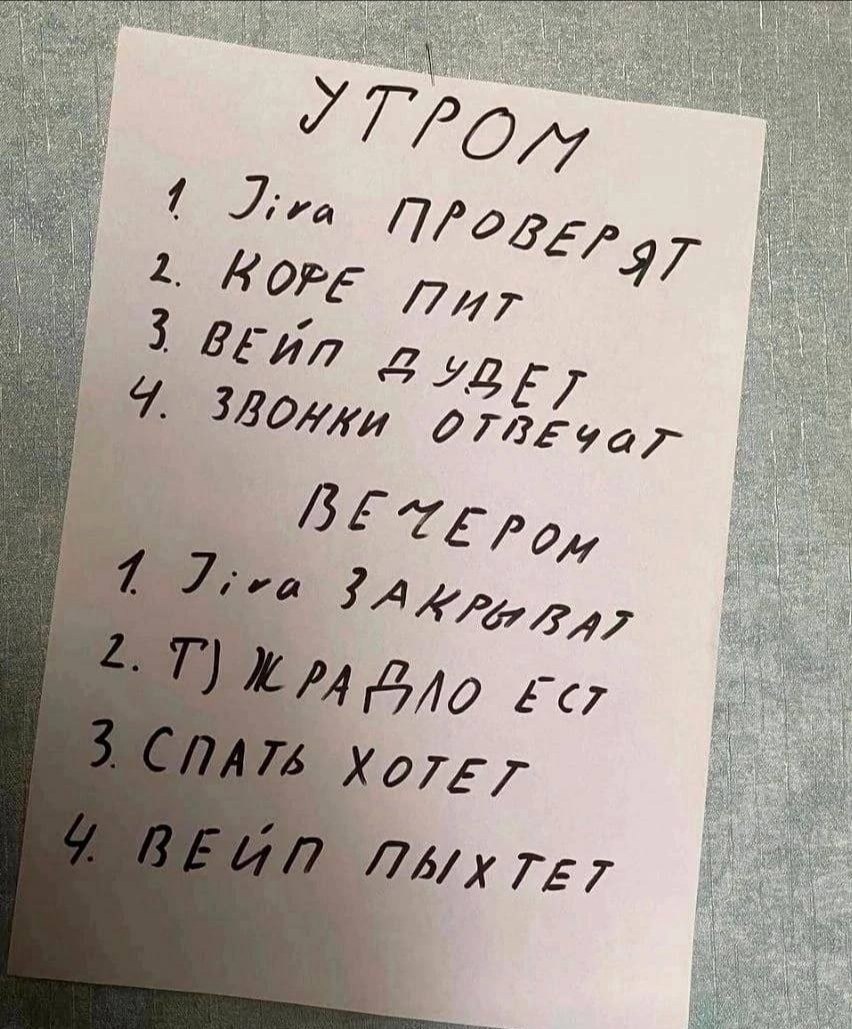 УТРОМ
1. Jira ПРОВЕРЯТ
2. КОФЕ ПИТ
3. ВЕЙП ДУДЕТ
4. ЗВОНКИ ОТВЕЧаТ
ВЕЧЕРОМ
1. Jira ЗАКРЫВАТ
2. Т) ЖРАДЛО ЕСТ
3. СПАТЬ ХОТЕТ
4. ВЕЙП ПЫХТЕТ